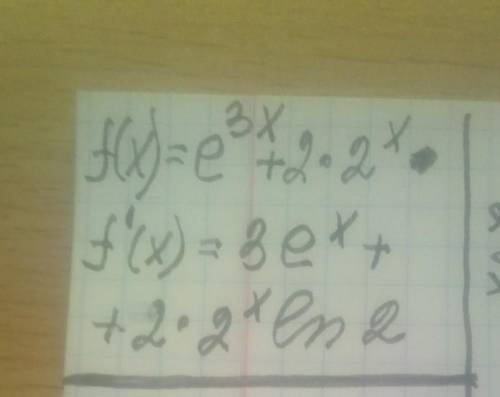 f(x)=e^{3x}+2·2^x
f'(x)=3e^x+
+2·2^x ln 2